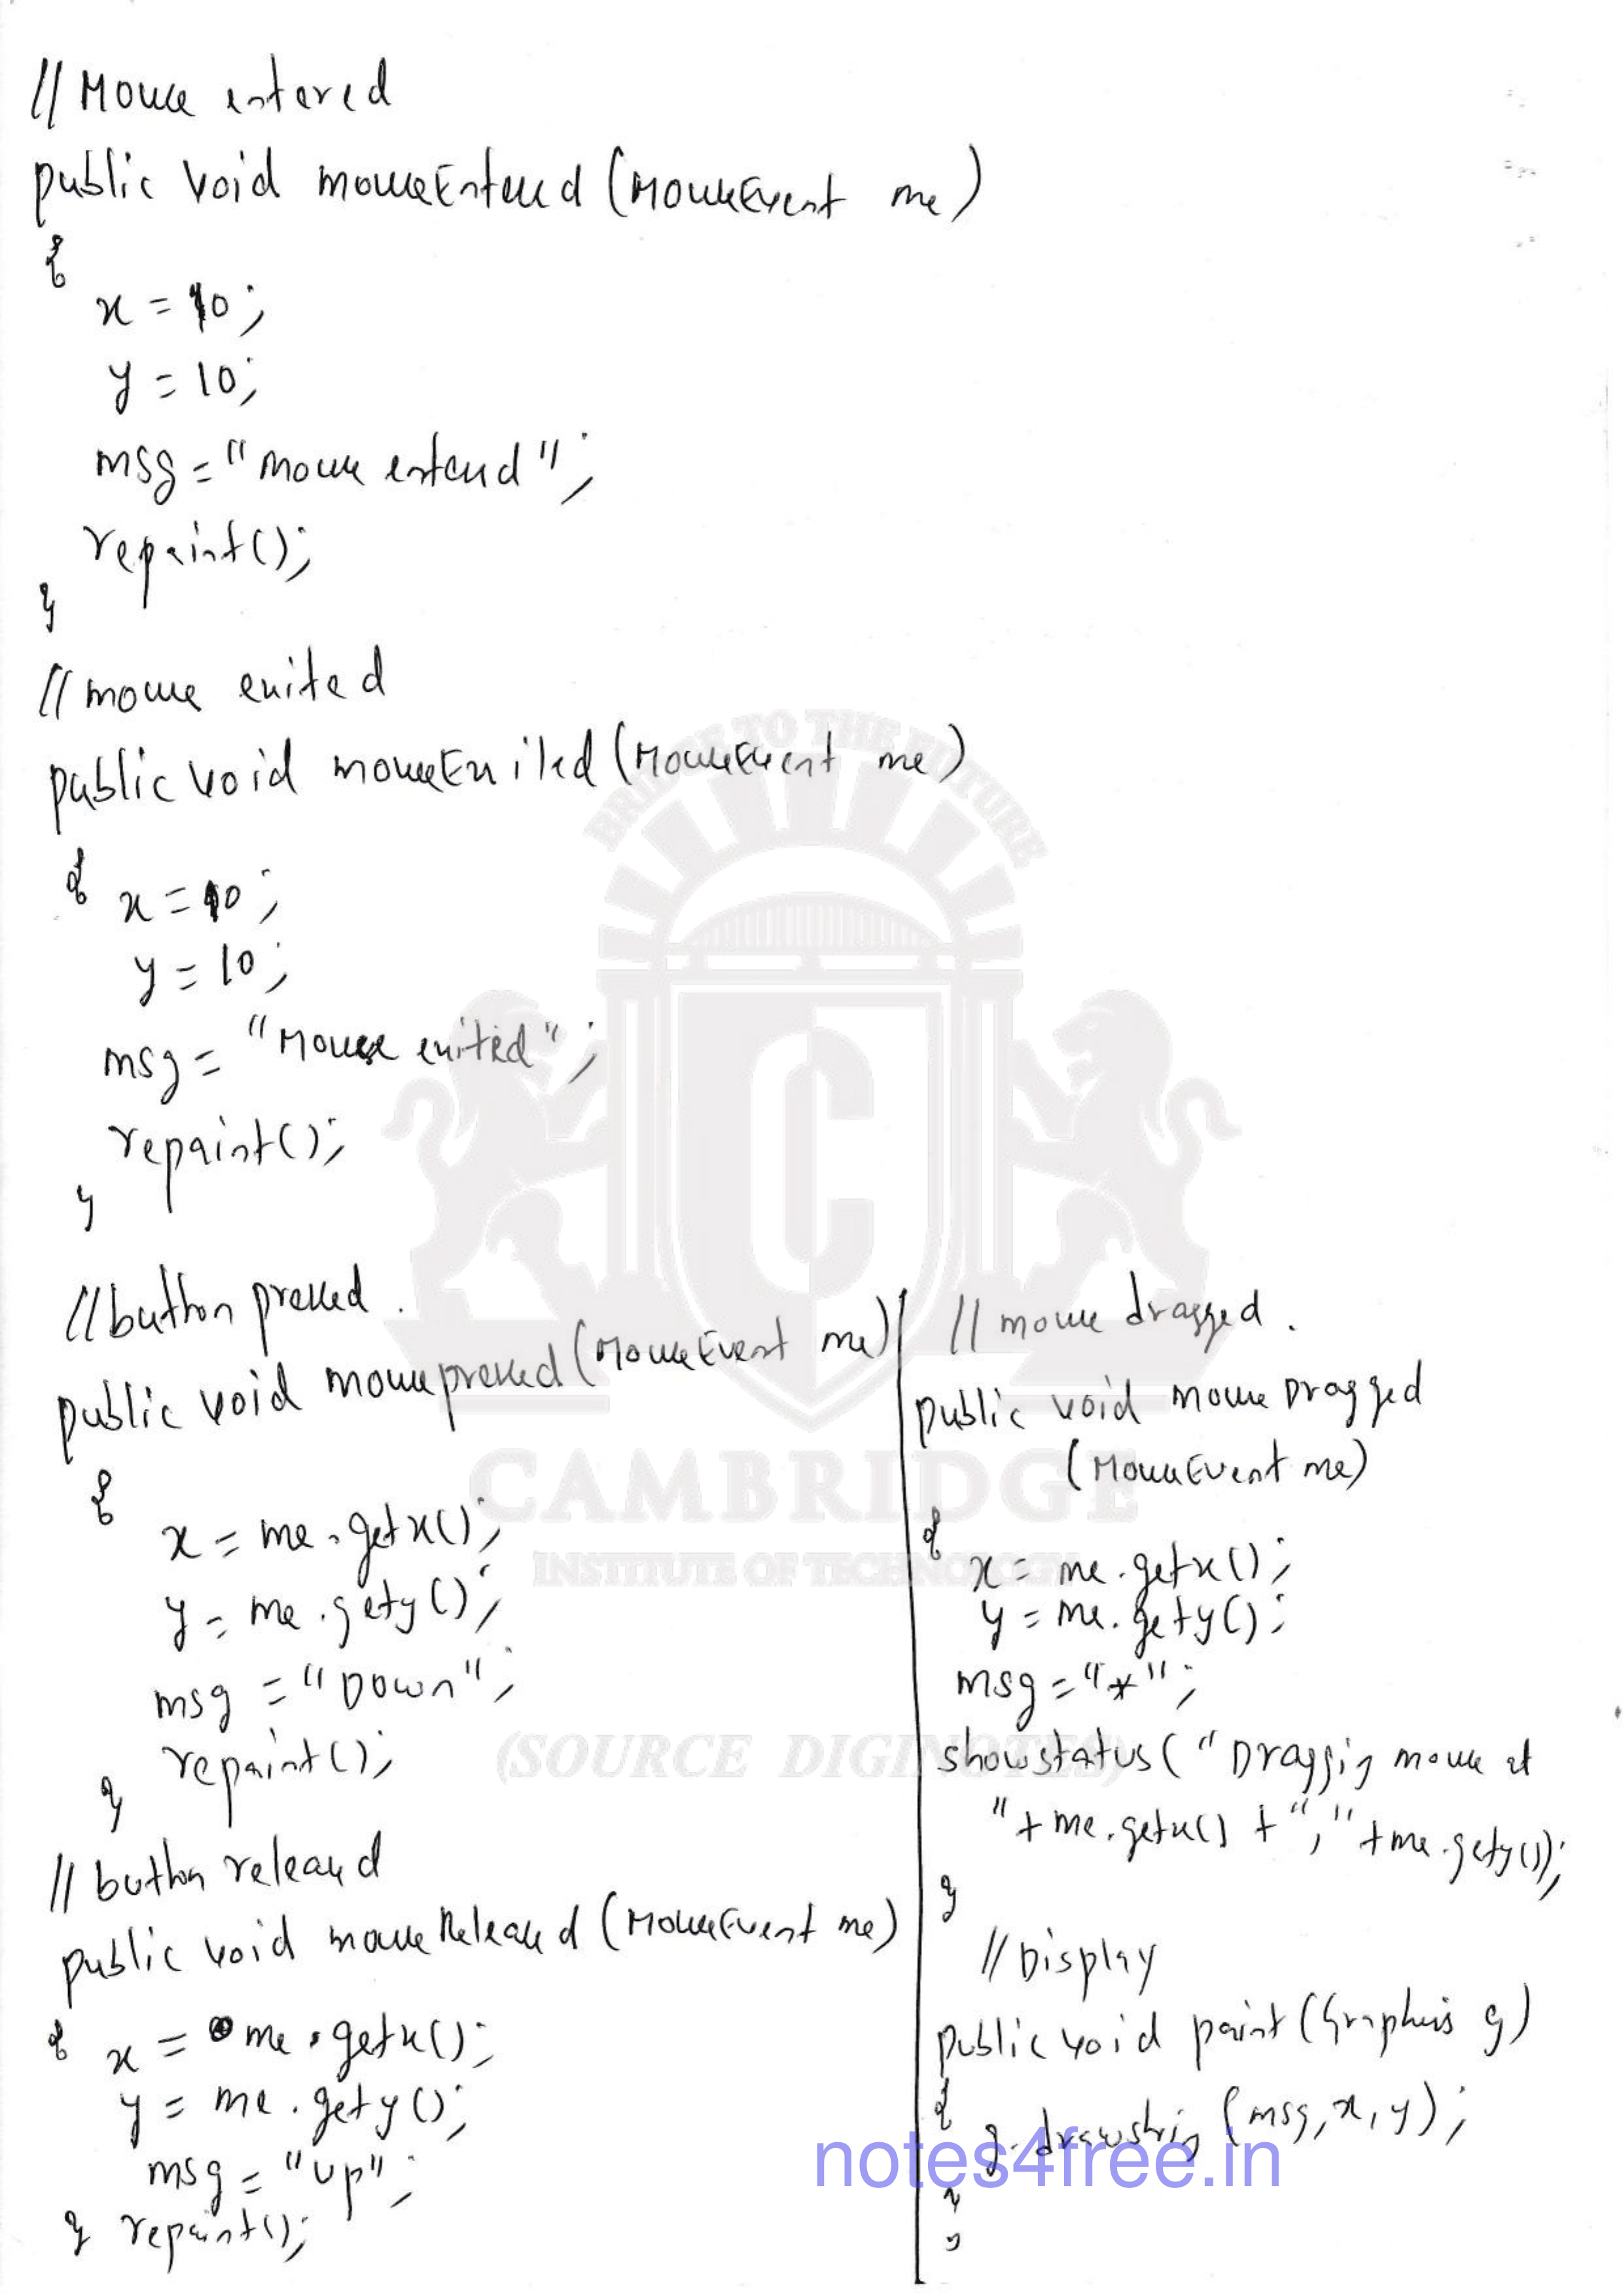 // Mouse entered
public void mouseEntered (MouseEvent me)
{
x = 10;
y = 10;
msg = "mouse entered";
repaint();
}
// mouse exited
public void mouseExited (MouseEvent me)
{ x = 10;
y = 10;
msg = "Mouse exited";
repaint();
}
// button pressed.
public void mousepressed (MouseEvent me)
{
x = me.getx();
y = me.gety();
msg = "Down";
repaint();
}
// button released
public void mouseReleased (MouseEvent me)
{ x = me.getx();
y = me.gety();
msg = "up";
} repaint();
// mouse dragged.
public void mouseDragged
(MouseEvent me)
{
x = me.getx();
y = me.gety();
msg = "*";
showstatus ("Dragging mouse at
" + me.getx() + "," + me.gety());
}
// Display
public void paint (Graphics g)
{
g.drawstring (msg, x, y);
}
}
BRIDGE TO THE FUTURE
C
CAMBRIDGE
INSTITUTE OF TECHNOLOGY
(SOURCE DIGINOTES)
notes4free.in